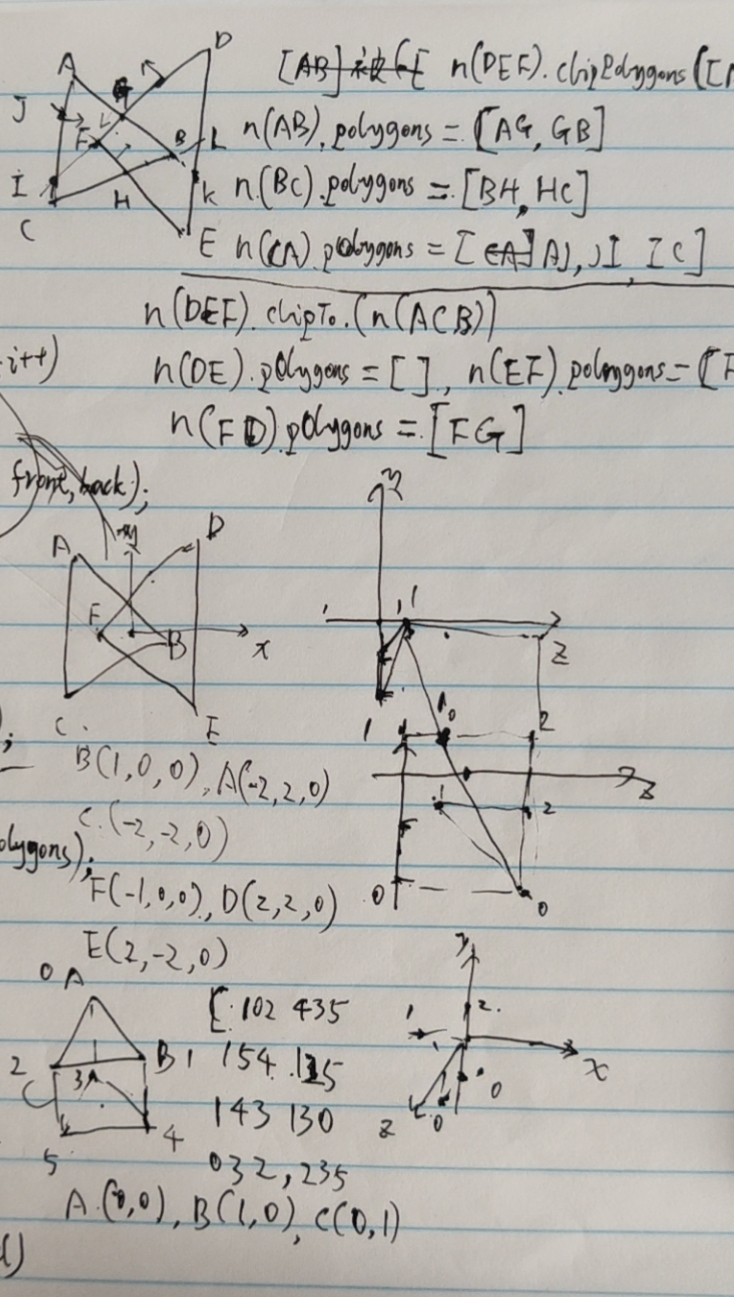 A
D
G
J
F
B
L
I
H
K
C
E
n(DEF).chipPolygons([
n(AB).polygons = [AG, GB]
n(BC).polygons = [BH, HC]
n(CA).polygons = [AJ, JI, IC]
n(DEF).chipTo.(n(ACB))
i++)
n(DE).polygons = [], n(EF).polygons = [F
n(FD).polygons = [FG]
front, back);
A
D
F
B
x
C.
E
z
B(1,0,0), A(-2,2,0)
C.(-2,-2,0)
olygons);
F(-1,0,0), D(2,2,0)
E(2,-2,0)
1
2
z
2
0
0
0 A
2
B 1
3
4
5
[102 435
154 135
143 130
032, 235
y
2.
1
x
0
z
0
A.(0,0), B(1,0), C(0,1)